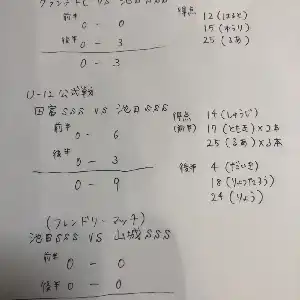 フレンドC VS 池田SSS
前半
0 - 0
後半
0 - 3
0 - 3
得点 12 (はると)
15 (ゆうり)
25 (るあ)
U-12 公式戦
田富SSS VS 池田SSS
前半
0 - 6
後半
0 - 3
0 - 9
得点 14 (しゅうじ)
(前半) 17 (ともき) ×2本
25 (るあ) ×3本
後半 4 (だいき)
18 (りょうたろう)
24 (りょう)
(フレンドリーマッチ)
池田SSS VS 山城SSS
前半
0 - 0
後半
0 - 0